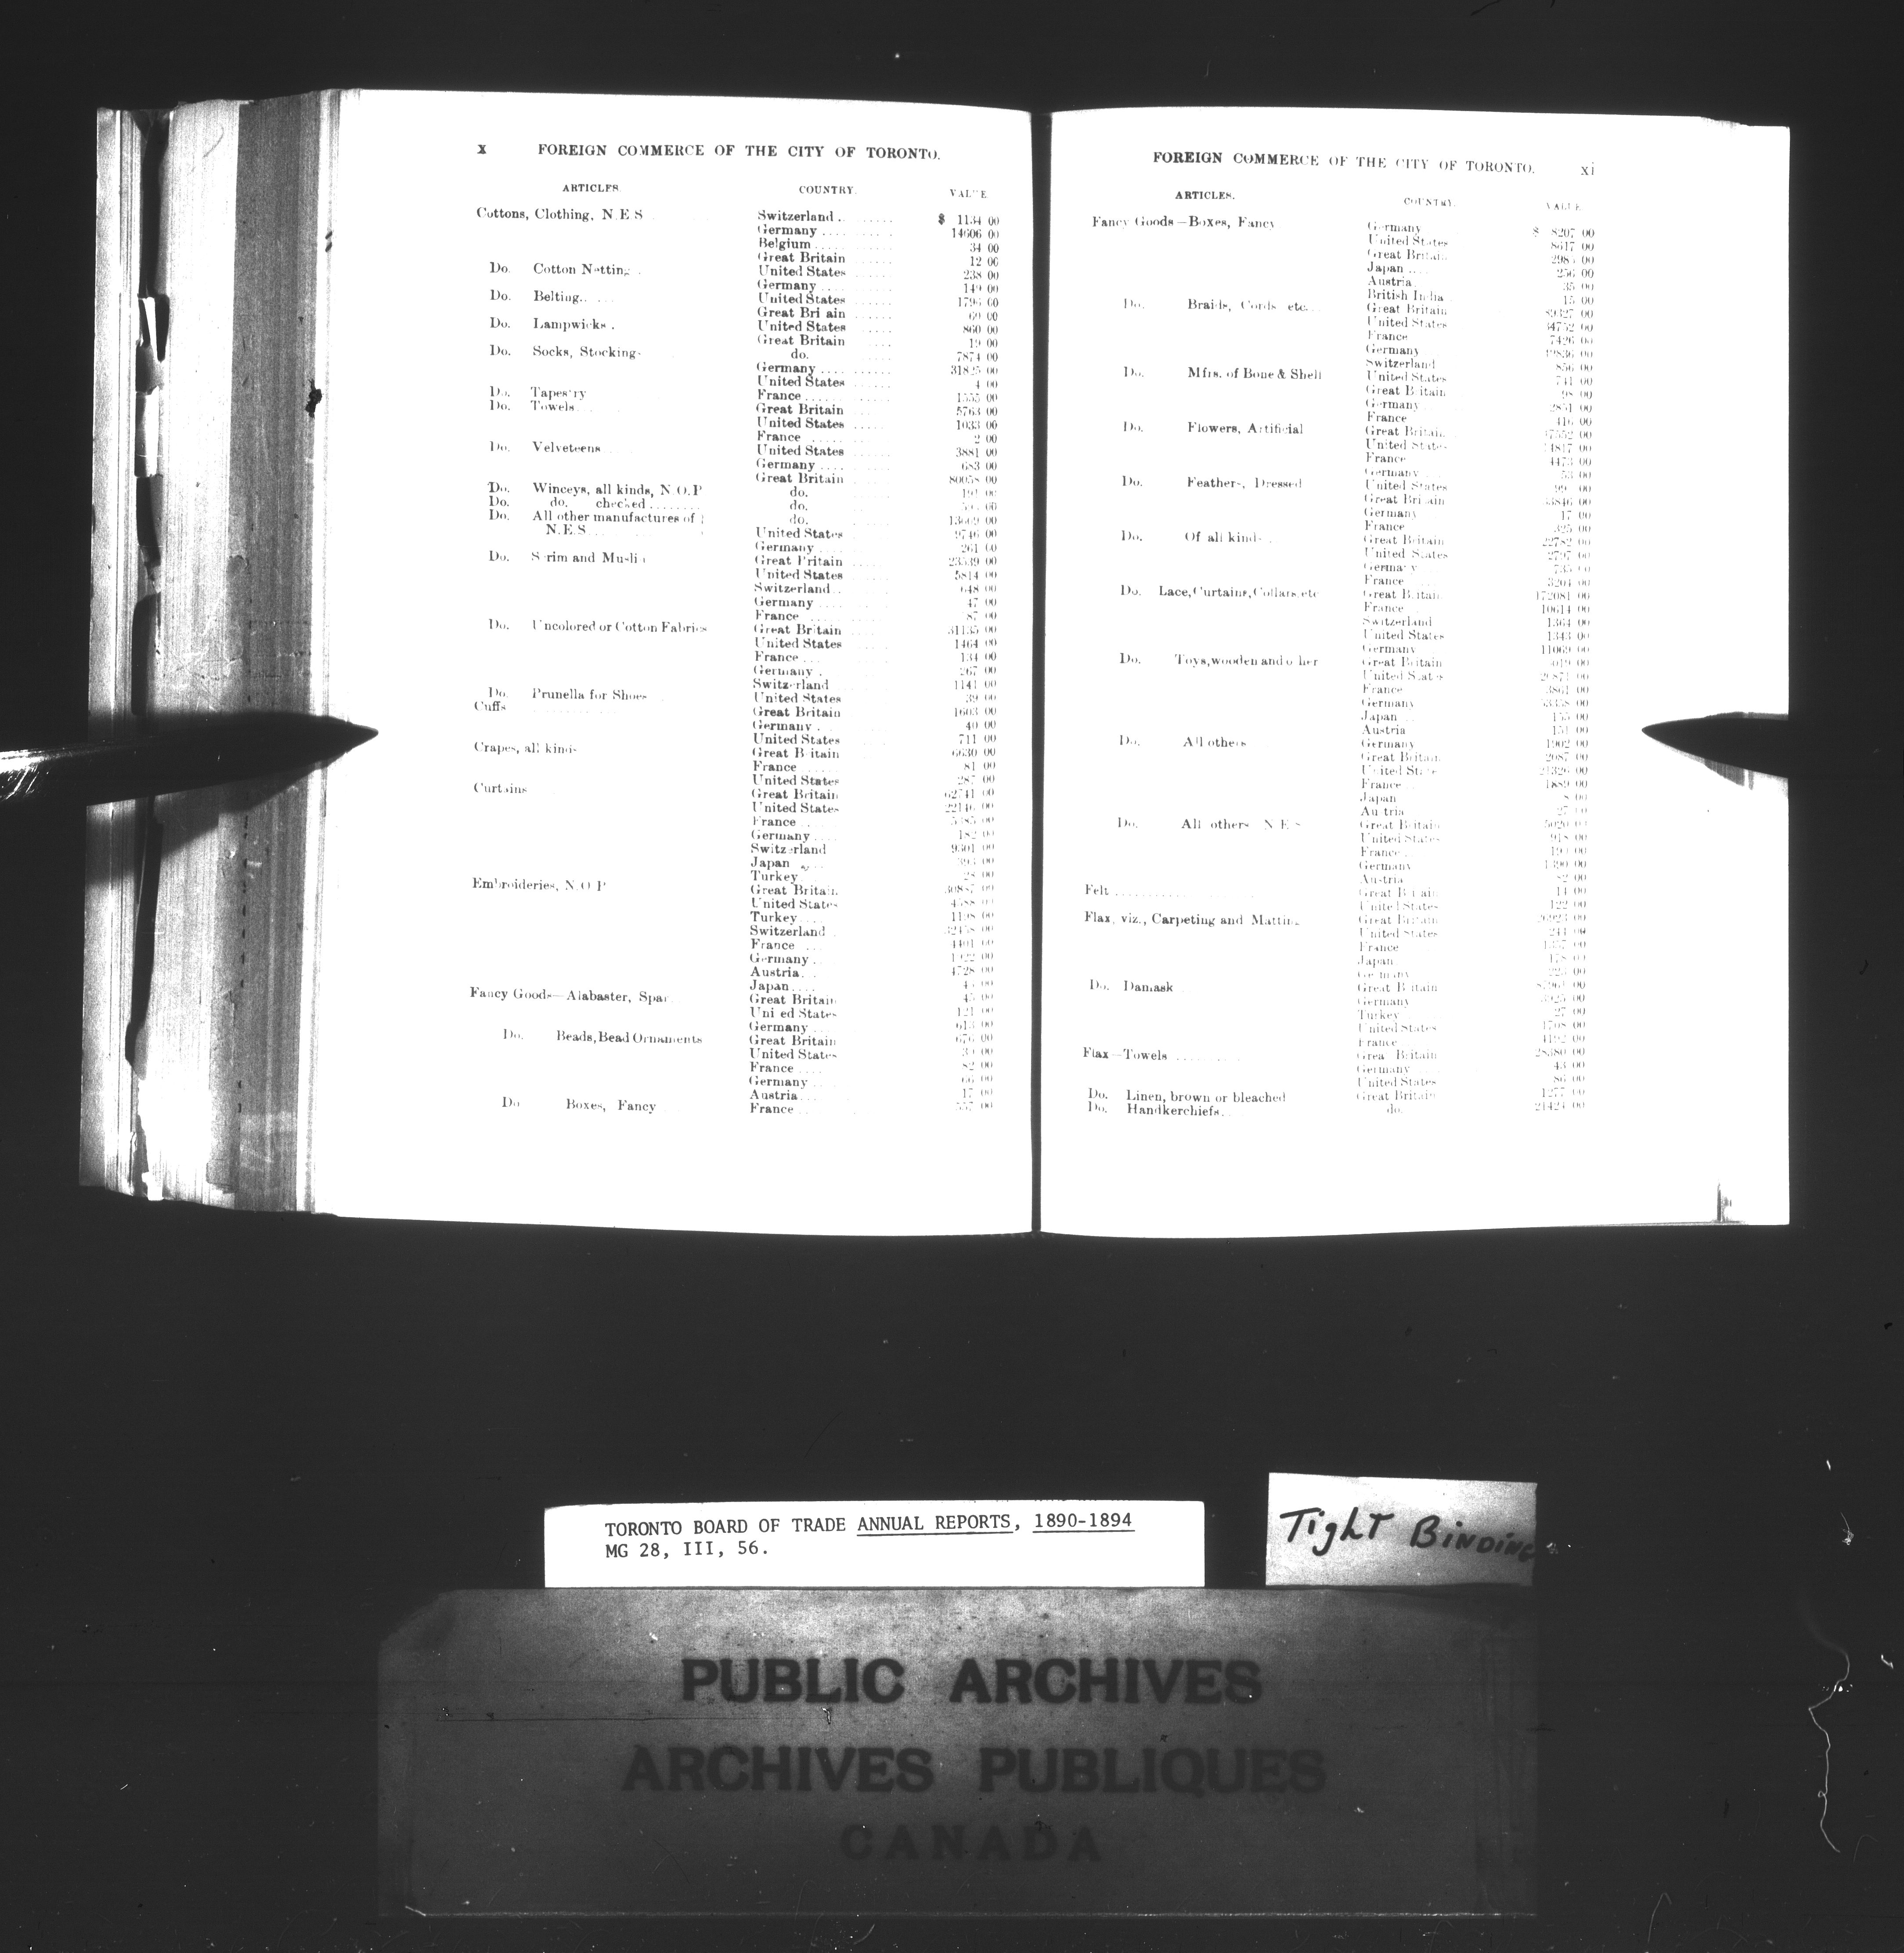 x FOREIGN COMMERCE OF THE CITY OF TORONTO.
ARTICLES COUNTRY. VALUE
Cottons, Clothing, N.E.S Switzerland .. $ 1134 00
Germany .... 14606 00
Belgium .... 34 00
Great Britain 12 00
Do. Cotton Netting United States 238 00
Germany .... 149 00
Do. Belting.. United States 00
Great Britain 00
Do. Lampwicks . United States 860 00
Great Britain 19 00
Do. Socks, Stockings do. 7874 00
Germany .... 31825 00
United States 4 00
Do. Tapestry France .... 1555 00
Do. Towels Great Britain 5763 00
United States 1033 00
France .... 2 00
Do. Velveteens United States 3881 00
Germany .... 683 00
Great Britain 80058 00
Do. Winceys, all kinds, N.O.P do. 00
Do. do. checked ........ do. 00
Do. All other manufactures of do. 13609 00
N.E.S United States 9746 00
Germany 261 00
Do. Scrim and Muslin Great Britain 23539 00
United States 5814 00
Switzerland.. 648 00
Germany .... 47 00
France 87 00
Do. Uncolored or Cotton Fabrics Great Britain 31135 00
United States 1464 00
France ... 134 00
Germany . 267 00
Switzerland 1141 00
Do. Prunella for Shoes United States 39 00
Cuffs Great Britain 1603 00
Germany . 40 00
United States 711 00
Crapes, all kinds Great Britain 6630 00
France 81 00
United States 287 00
Curtains Great Britain 62741 00
United States 22146 00
France 00
Germany .... 182 00
Switzerland 9301 00
Japan 00
Turkey 28 00
Embroideries, N.O.P Great Britain 00
United States 00
Turkey 00
Switzerland 00
France 4401 00
Germany .. 00
Austria 4728 00
Japan .... 00
Fancy Goods—Alabaster, Spar Great Britain 45 00
United States 121 00
Germany ... 613 00
Do. Beads, Bead Ornaments Great Britain 676 00
United States 00
France .... 82 00
Germany .... 66 00
Austria ... 17 00
Do Boxes, Fancy France .. 00
FOREIGN COMMERCE OF THE CITY OF TORONTO. xi
ARTICLES. COUNTRY. VALUE
Fancy Goods—Boxes, Fancy Germany $ 8207 00
United States 8617 00
Great Britain 00
Japan .... 256 00
Austria 35 00
British India 15 00
Do. Braids, Cords etc. Great Britain 00
United States 00
France 7426 00
Germany 00
Switzerland 856 00
Do. Mfrs. of Bone & Shell United States 741 00
Great Britain 98 00
Germany 2851 00
France 416 00
Do. Flowers, Artificial Great Britain 00
United States 00
France 4473 00
Germany 53 00
Do. Feathers, Dressed United States 00
Great Britain 00
Germany 17 00
France 325 00
Do. Of all kinds Great Britain 22782 00
United States 2797 00
Germany 00
France 3204 00
Do. Lace, Curtains, Collars, etc Great Britain 172081 00
France 10614 00
Switzerland 1364 00
United States 1343 00
Germany 11069 00
Do. Toys, wooden and other Great Britain 00
United States 00
France 3861 00
Germany 00
Japan 00
Austria 151 00
Do. All others Germany 1902 00
Great Britain 2087 00
United States 00
France 1889 00
Japan 8 00
Austria 27 00
Do. All others N E S Great Britain 5020 00
United States 00
France . 00
Germany 00
Austria 82 00
Felt .......... Great Britain 14 00
United States 122 00
Flax, viz., Carpeting and Matting Great Britain 00
United States 00
France 00
Japan 00
Germany 00
Do. Damask Great Britain 00
Germany 00
Turkey 27 00
United States 00
France 00
Flax—Towels Great Britain 00
Germany 43 00
United States 86 00
Do. Linen, brown or bleached Great Britain 00
Do. Handkerchiefs. do. 00
TORONTO BOARD OF TRADE ANNUAL REPORTS, 1890-1894
MG 28, III, 56.
Tight Binding
PUBLIC ARCHIVES
ARCHIVES PUBLIQUES
CANADA